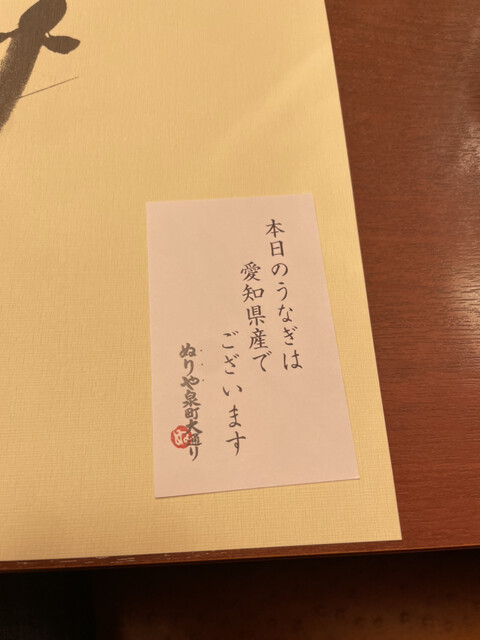 本日のうなぎは
愛知県産で
ございます
ぬりや泉町大通り